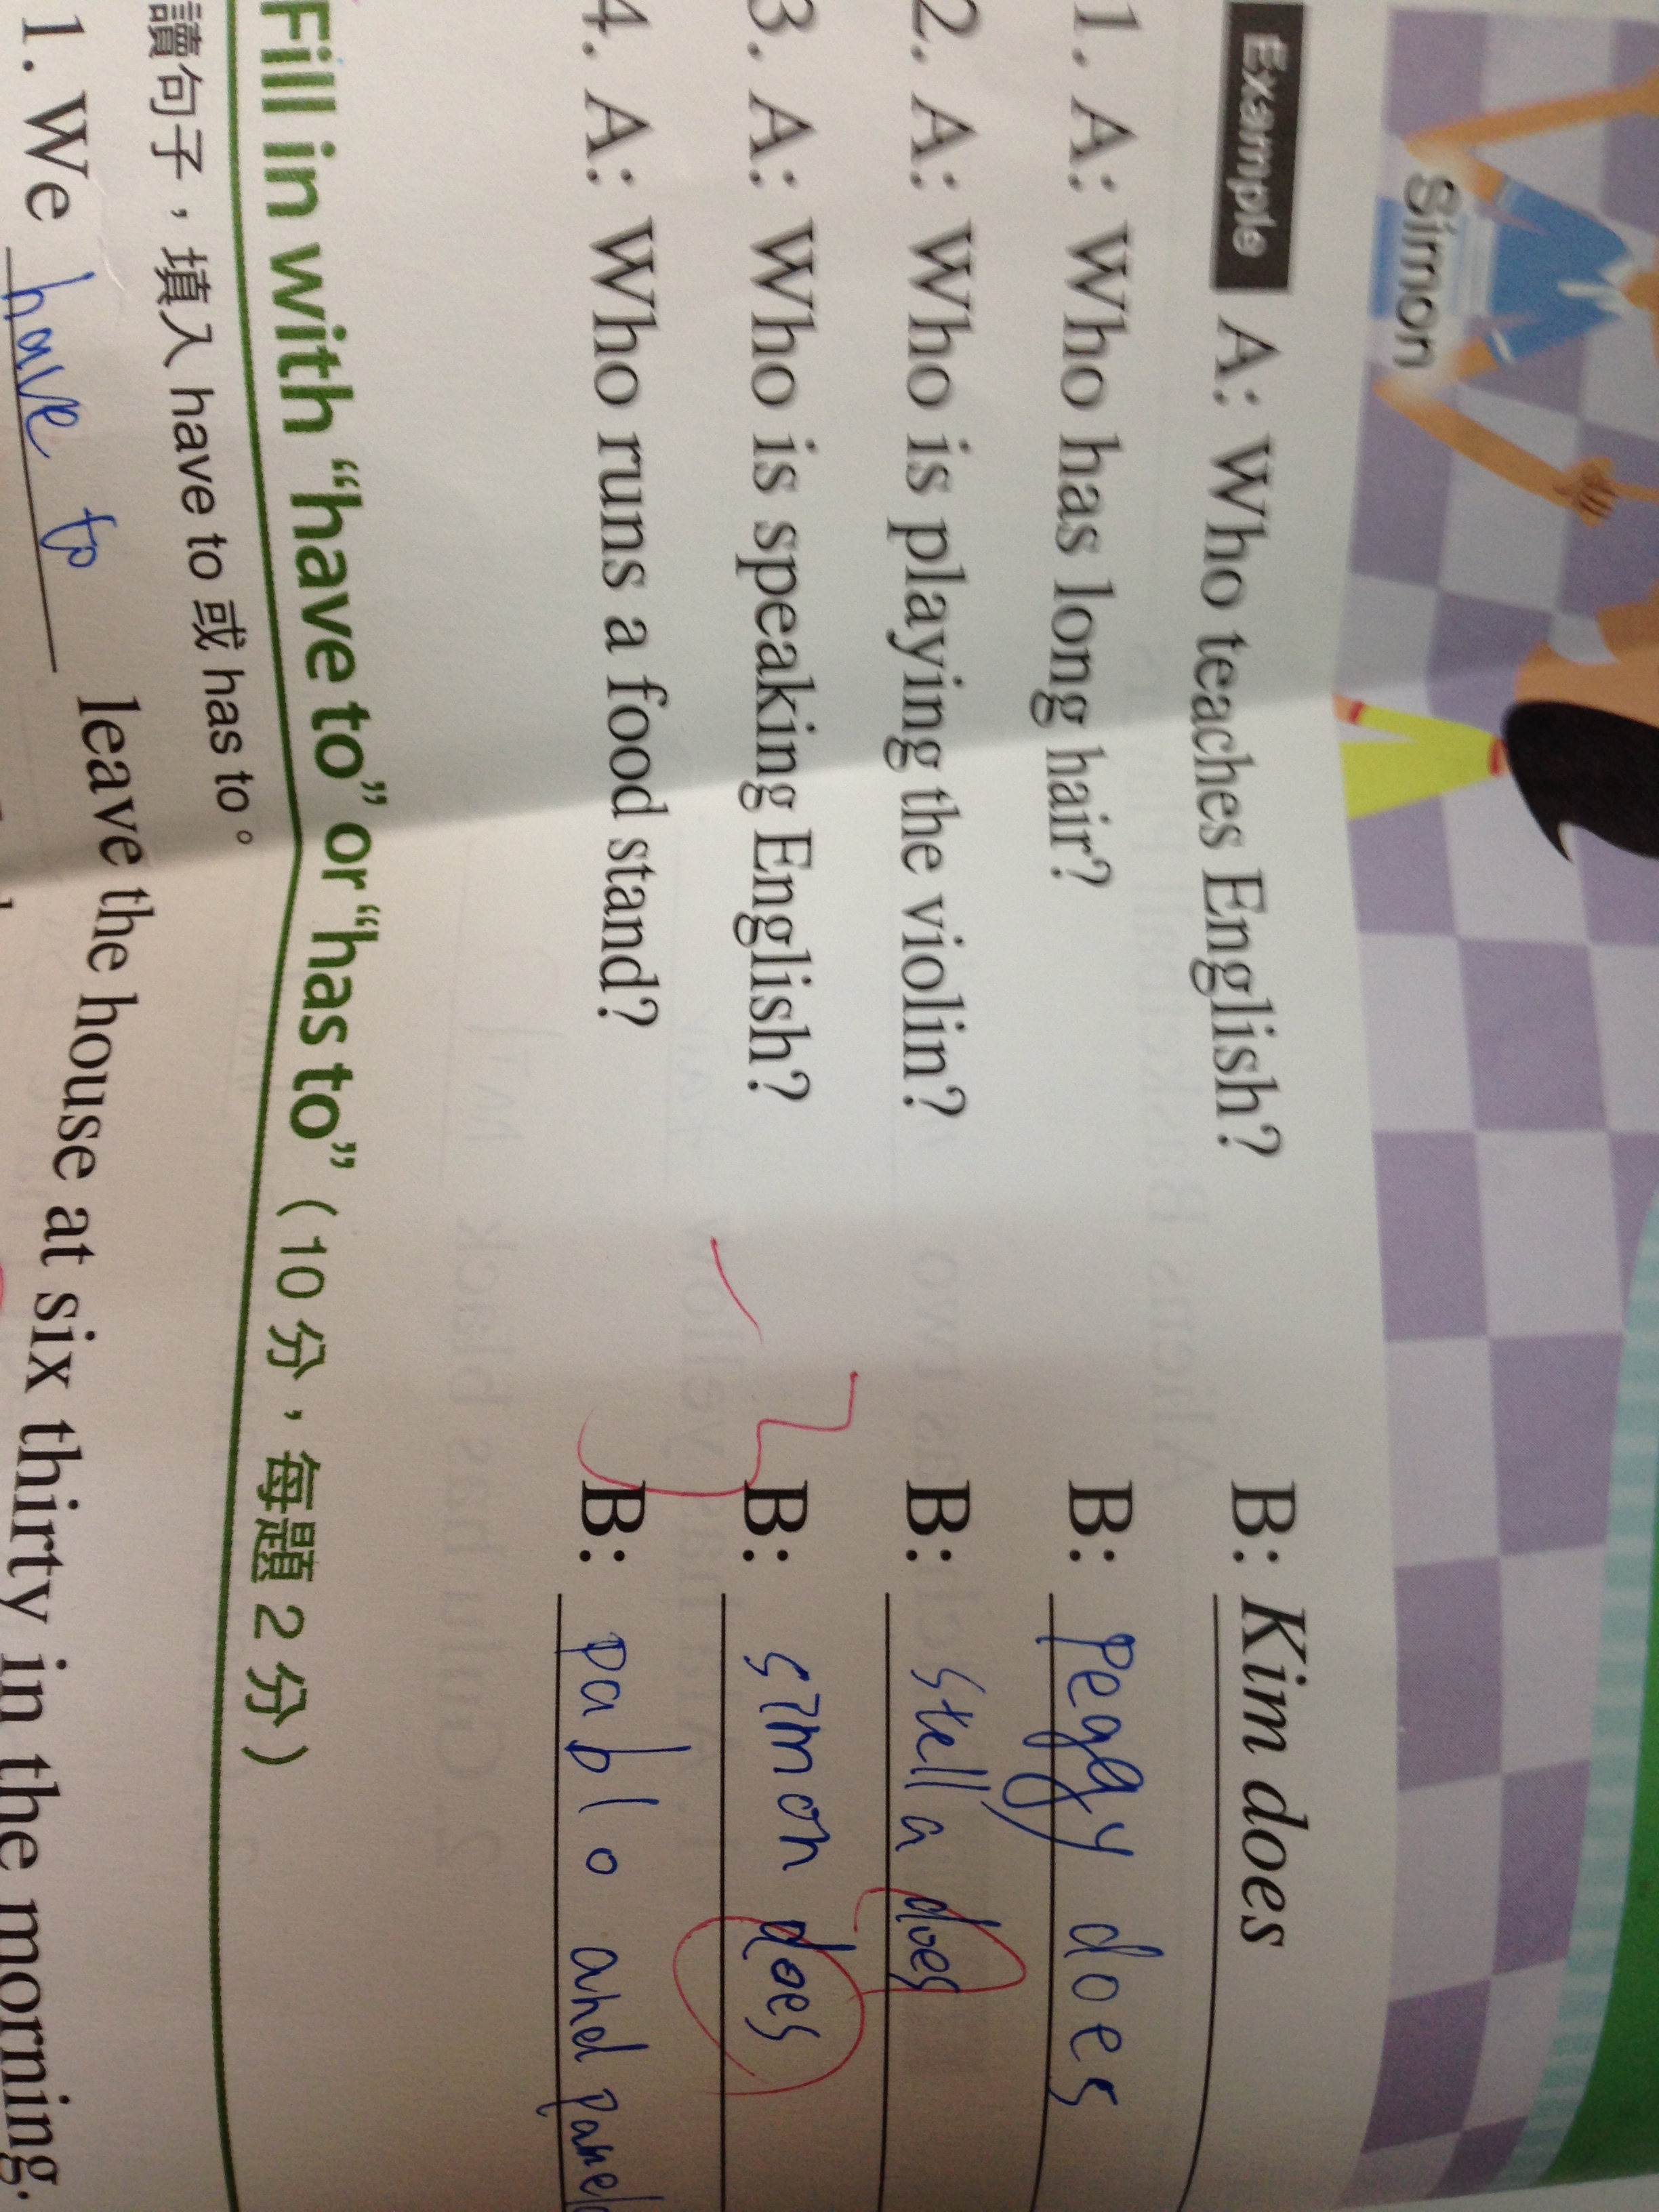 Simon
Example A: Who teaches English? B: Kim does
1. A: Who has long hair? B: Peggy does
2. A: Who is playing the violin? B: stella does
3. A: Who is speaking English? B: simon does
4. A: Who runs a food stand? B: pablo and
Fill in with “have to” or “has to” (10 分,每題 2 分)
讀句子,填入 have to 或 has to。
1. We have to leave the house at six thirty in the morning.